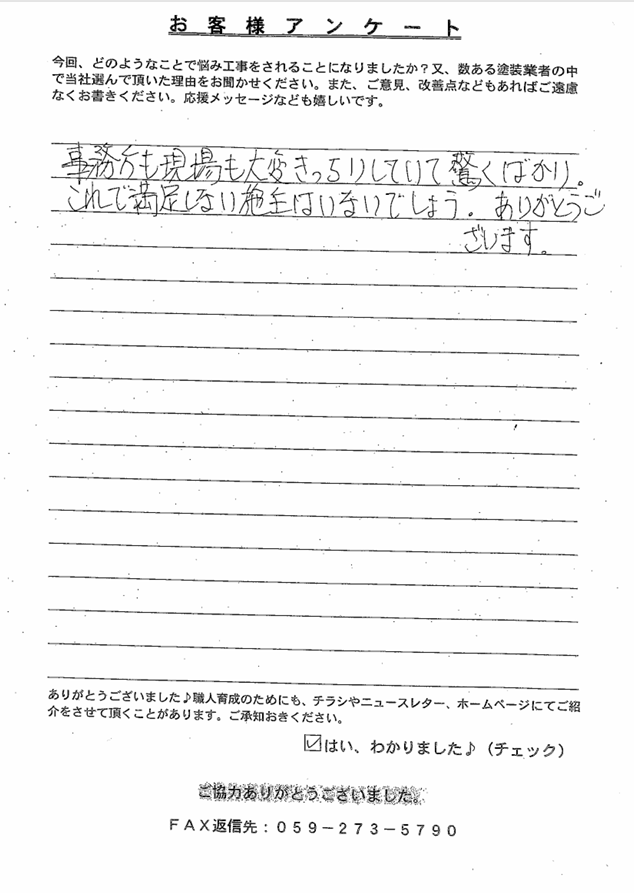 お客様アンケート
今回、どのようなことで悩み工事をされることになりましたか？又、数ある塗装業者の中
で当社選んで頂いた理由をお聞かせください。また、ご意見、改善点などもあればご遠慮
なくお書きください。応援メッセージなども嬉しいです。
事務方も現場も大変きっちりしていて驚くばかり。
これで満足しない施主はいないでしょう。ありがとうご
ざいます。
ありがとうございました♪職人育成のためにも、チラシやニュースレター、ホームページにてご紹
介をさせて頂くことがあります。ご承知おきください。
☑はい、わかりました♪（チェック）
ご協力ありがとうございました。
ＦＡＸ返信先：０５９－２７３－５７９０